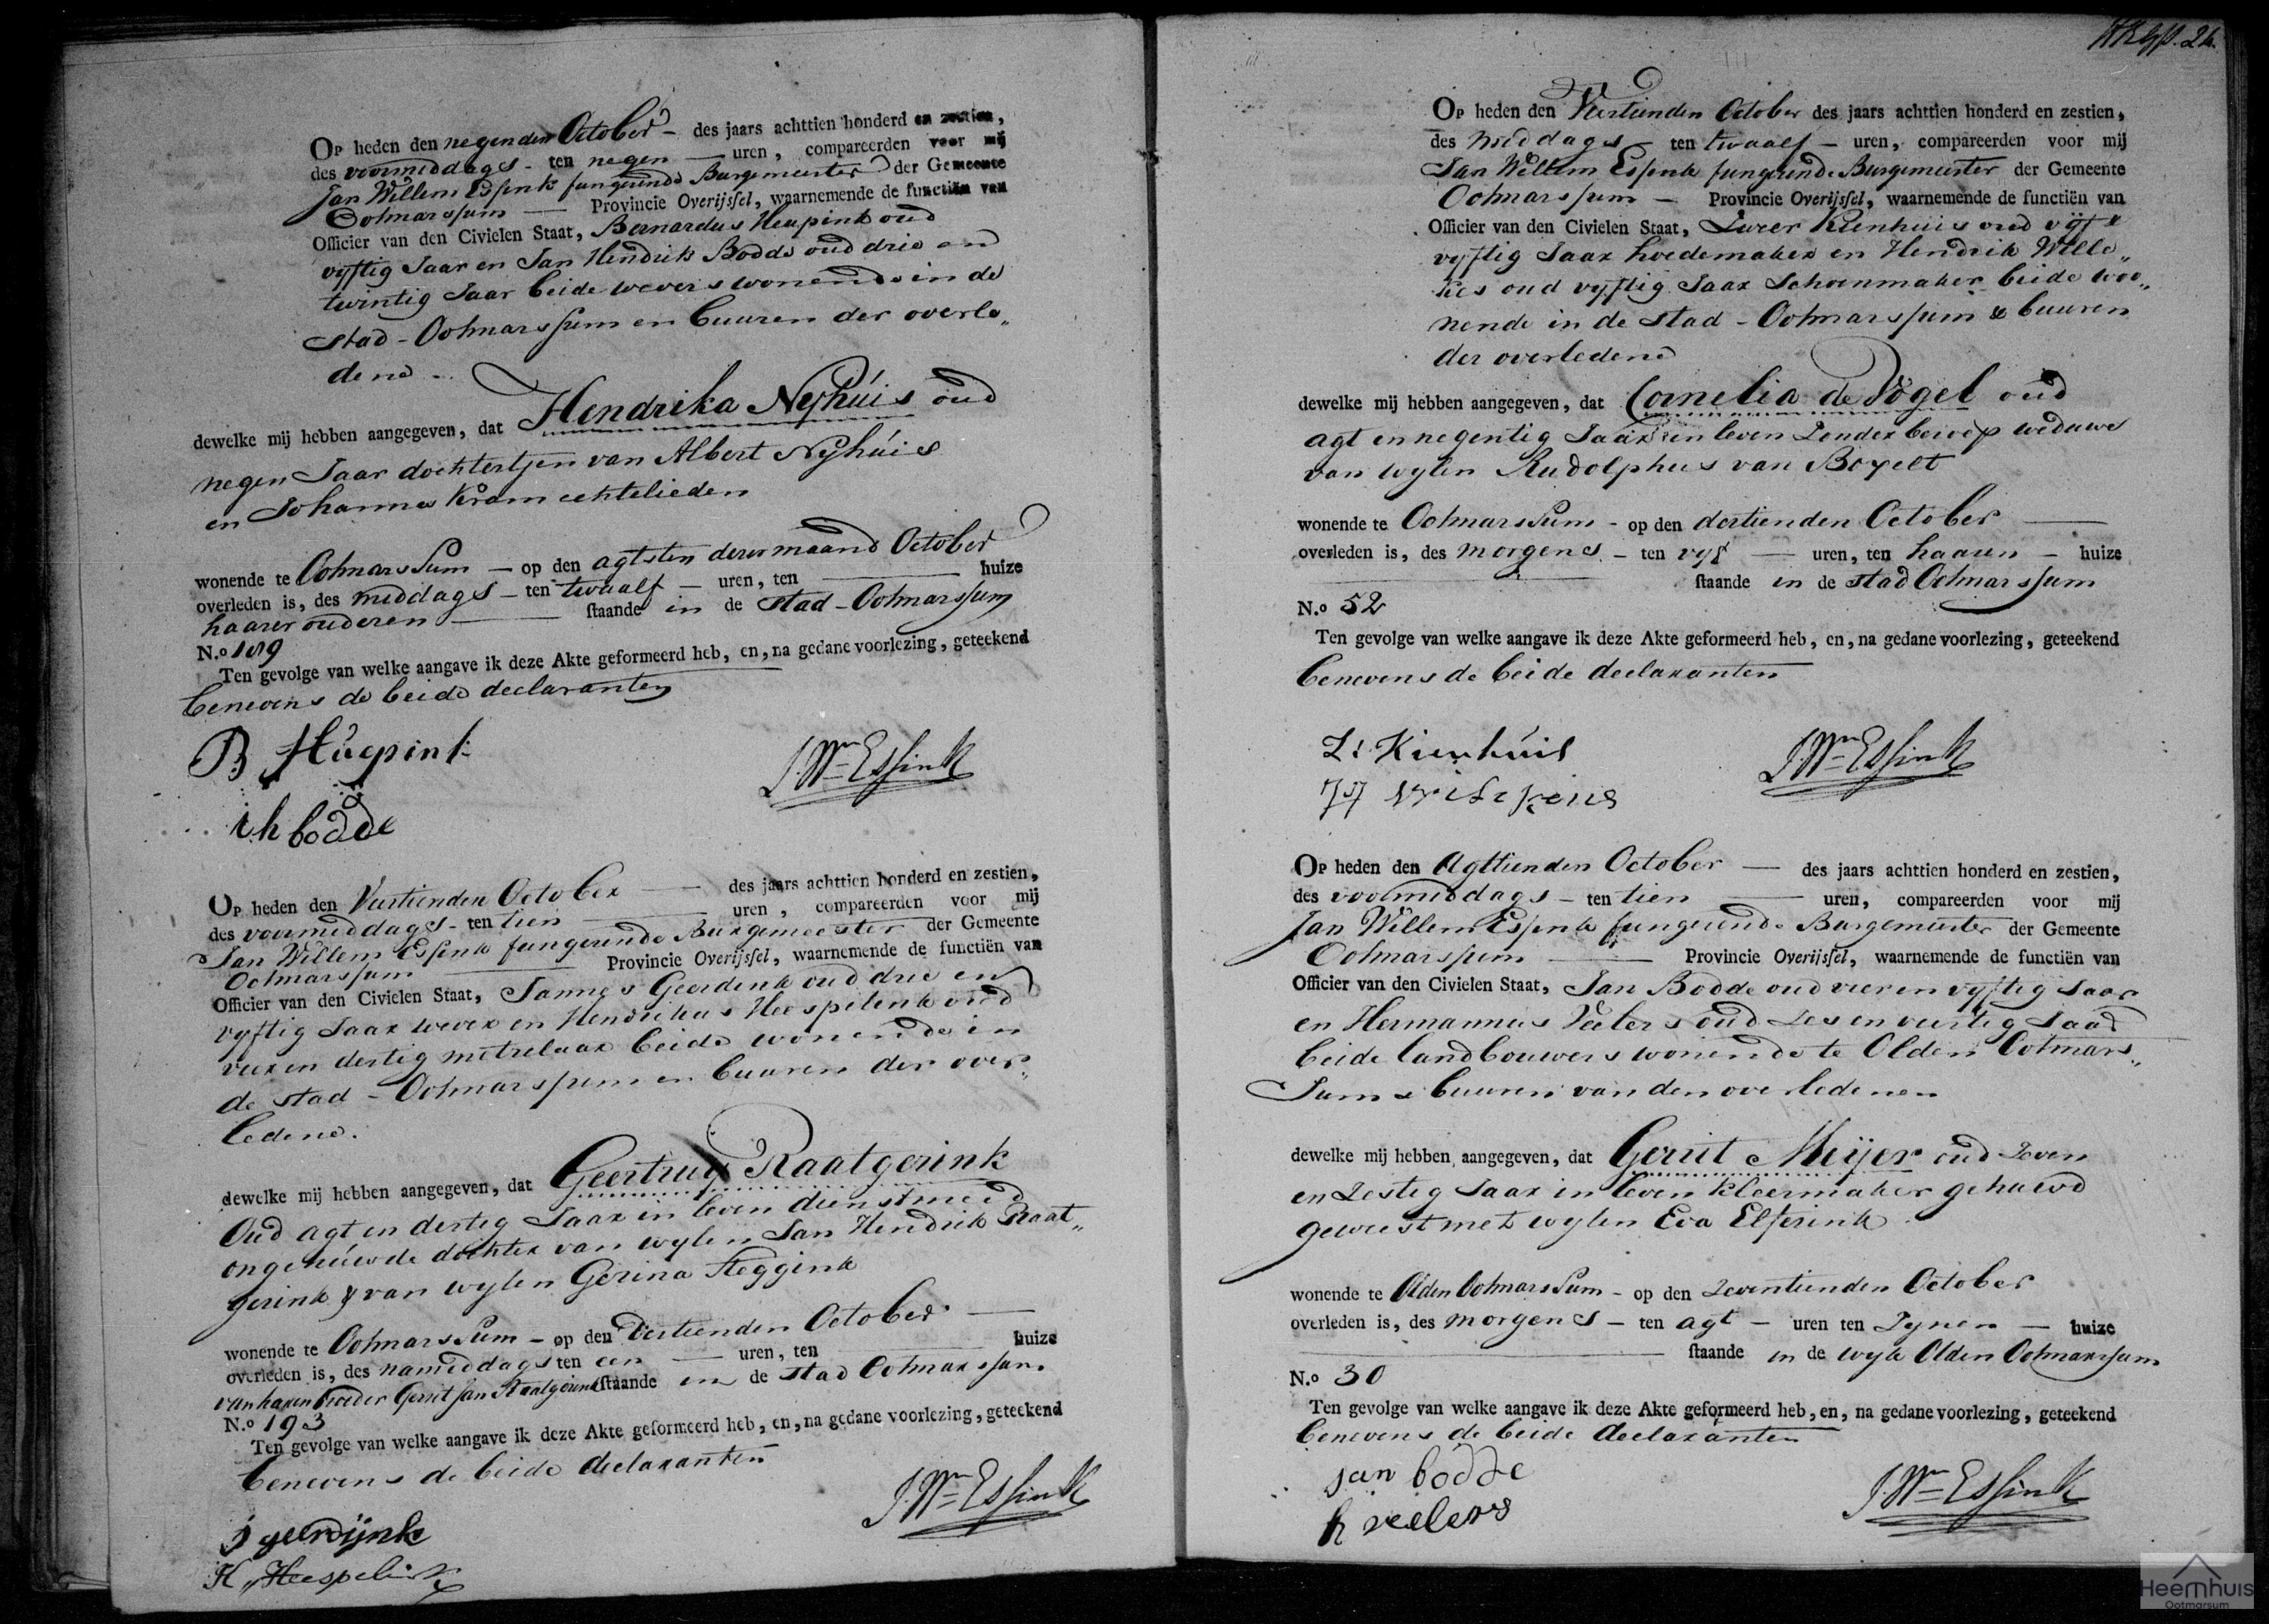 Op heden den negenden October - des jaars achttien honderd en zestien,
des voormiddags - ten negen — uren, compareerden voor mij
Jan Willem Essink fungerende Burgemeester der Gemeente
Ootmarssum — Provincie Overijssel, waarnemende de functiën van
Officier van den Civielen Staat, Bernardus Heupink oud
vyftig Jaar en Jan Hendrik Bodde oud drie en
twintig Jaar beide wevers wonende in de
stad - Ootmarssum en buuren der overle„
dene -
dewelke mij hebben aangegeven, dat Hendrika Nyhúis oud
negen Jaar dochtertjen van Albert Nyhúis
en Johanna Kram echtelieden
wonende te Ootmarssum — op den agtsten dezer maand October
overleden is, des middags - ten twaalf - uren, ten — huize
haarer ouderen — staande in de stad - Ootmarssum
N.o 109
Ten gevolge van welke aangave ik deze Akte geformeerd heb, en, na gedane voorlezing, geteekend
benevens de beide declaranten
B Húepink
J. Wm Essink
ih bodde
Op heden den Veertienden October — des jaars achttien honderd en zestien,
des voormiddags - ten tien — uren, compareerden voor mij
Jan Willem Essink fungerende Burgemeester der Gemeente
Ootmarssum — Provincie Overijssel, waarnemende de functiën van
Officier van den Civielen Staat, Jannes Geerdink oud drie en
vyftig Jaar wever en Hendrikus Heespelink oud
vier en dertig metzelaar beide wonende in
de stad - Ootmarssum en buuren der over„
ledene.
dewelke mij hebben aangegeven, dat Geertruy Raatgerink
Oud agt en dertig Jaar in leven dienstmeid
ongehúwde dochter van wylen Jan Hendrik Raat„
gerink & van wylen Gerina Steggink
wonende te Ootmarssum - op den dertienden October —
overleden is, des namiddags ten een — uren, ten — huize
van haren broeder Gerrit Jan Raatgerink staande in de stad Ootmarssum
N.o 193
Ten gevolge van welke aangave ik deze Akte geformeerd heb, en, na gedane voorlezing, geteekend
benevens de beide declaranten
J. Wm Essink
J geerdijnk
H, Heespelink
Op heden den Veertienden October des jaars achttien honderd en zestien,
des middags - ten twaalf - uren, compareerden voor mij
Jan Willem Essink fungerende Burgemeester der Gemeente
Ootmarssum - Provincie Overijssel, waarnemende de functiën van
Officier van den Civielen Staat, Zweer Kienhuis oud vijf &
vyftig Jaar hoedemaker en Hendrik Wille„
kes oud vyftig Jaar Schoenmaker beide woo„
nende in de stad - Ootmarssum & buuren
der overledene
dewelke mij hebben aangegeven, dat Cornelia de Vogel oud
agt en negentig Jaar in leven zonder beroep weduwe
van wylen Rudolphus van Boxelt
wonende te Ootmarssum - op den dertienden October —
overleden is, des morgens - ten vyf — uren, ten haaren - huize
— staande in de stad Ootmarssum
N.o 52
Ten gevolge van welke aangave ik deze Akte geformeerd heb, en, na gedane voorlezing, geteekend
benevens de beide declaranten
Z: Kienhúis
J. Wm Essink
Op heden den Agttienden October — des jaars achttien honderd en zestien,
des voormiddags - ten tien — uren, compareerden voor mij
Jan Willem Essink fungerende Burgemeester der Gemeente
Ootmarssum — Provincie Overijssel, waarnemende de functiën van
Officier van den Civielen Staat, Jan Bodde oud vier en vyftig Jaar
en Hermannus Veelers oud zes en veertig Jaar
beide landbouwers wonende te Olden Ootmars„
sum & buuren van den overledenen
dewelke mij hebben aangegeven, dat Gerrit Meijer oud zeven
en zestig Jaar in leven kleermaker gehuwd
geweest met wylen Eva Elferink
wonende te Olden Ootmarssum - op den zeventienden October
overleden is, des morgens - ten agt - uren ten zynen - huize
— staande in de wyk Olden Ootmarssum
N.o 30
Ten gevolge van welke aangave ik deze Akte geformeerd heb, en, na gedane voorlezing, geteekend
benevens de beide declaranten
jan bodde
J. Wm Essink
h veelers
Heemhuis
Ootmarsum